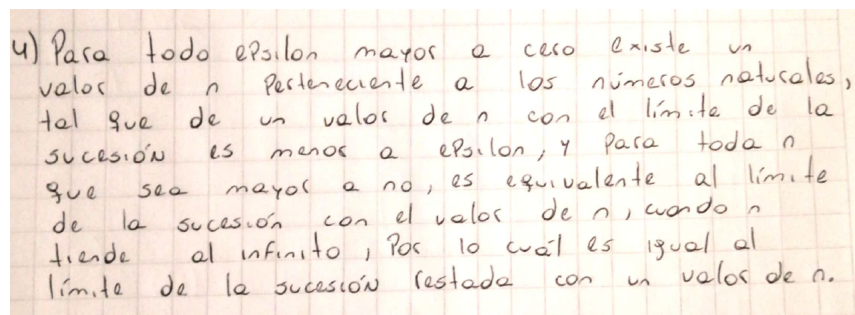 4) Para todo epsilon mayor a cero existe un
valor de n Perteneciente a los números naturales,
tal que de un valor de n con el límite de la
sucesión es menor a epsilon, y para toda n
que sea mayor a no, es equivalente al límite
de la sucesión con el valor de n, cuando n
tiende al infinito, Por lo cuál es igual al
límite de la sucesión restada con un valor de n.